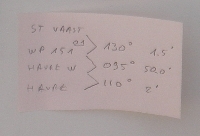 ST VAAST
WP 151 0.9 130° 1.5'
HAVRE W 095° 50.0'
HAVRE 110° 2'